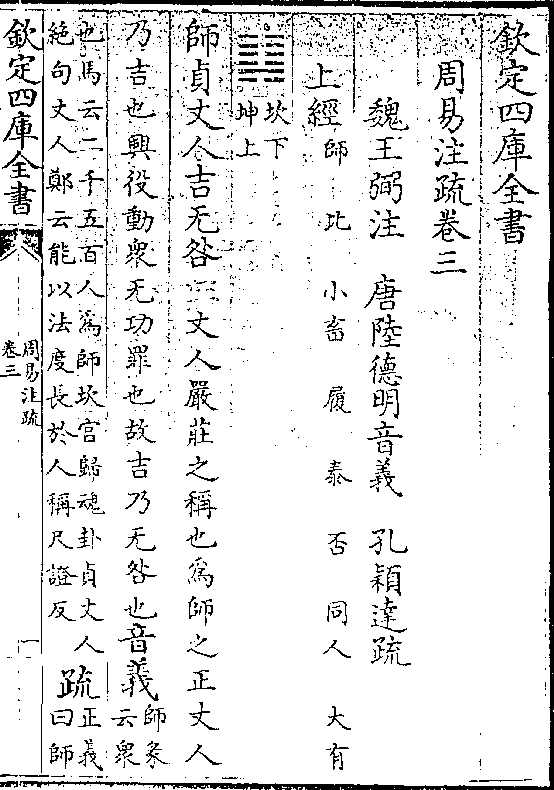 欽定四庫全書
周易注疏卷三
魏王弼注　唐陸德明音義　孔穎達疏
上經師　比　小畜　履　泰　否　同人　大有
坎下
坤上
師貞丈人吉无咎　丈人嚴莊之稱也爲師之正丈人
乃吉也興役動衆无功罪也故吉乃无咎也音義師彖
云衆
也馬云二千五百人爲師坎宫歸魂卦貞丈人
絶句丈人鄭云能以法度長於人稱尺證反
疏正義
曰師
欽定四庫全書
周易注疏
卷三
一